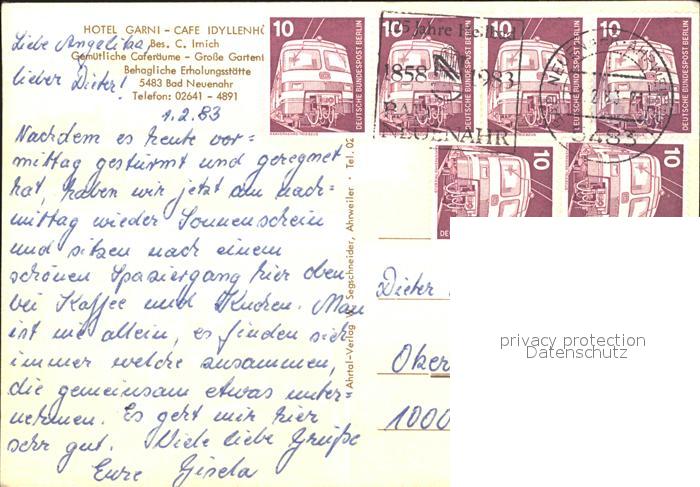 HOTEL GARNI – CAFE IDYLLENHÖ
Bes. C. Irnich
Gemütliche Caferäume – Große Garten
Behagliche Erholungsstätte
5483 Bad Neuenahr
Telefon: 02641 – 4891
Liebe Angelika,
lieber Dieter!
1.2.83
Nachdem es heute vor=
mittag gestürmt und geregnet
hat, haben wir jetzt am nach=
mittag wieder Sonnenschein
und sitzen nach einem
schönen Spaziergang hier oben
bei Kaffee und Kuchen. Man
ist nie allein, es finden sich
immer welche zusammen,
die gemeinsam etwas unter=
nehmen. Es geht mir hier
sehr gut. Viele liebe Grüße
Eure Gisela
Ahrtal-Verlag W. Segschneider, Ahrweiler · Tel. 02
10 10 10 10
DEUTSCHE BUNDESPOST BERLIN
DEUTSCHE BUNDESPOST BERLIN
DEUTSCHE BUNDESPOST BERLIN
DEUTSCHE BUNDESPOST BERLIN
10 10
125 Jahre Heilbad
1858 1983
BAD
NEUENAHR
BAD NEUENAHR-AHRWEILER
5483
Dieter
Ober
1000
privacy protection
Datenschutz